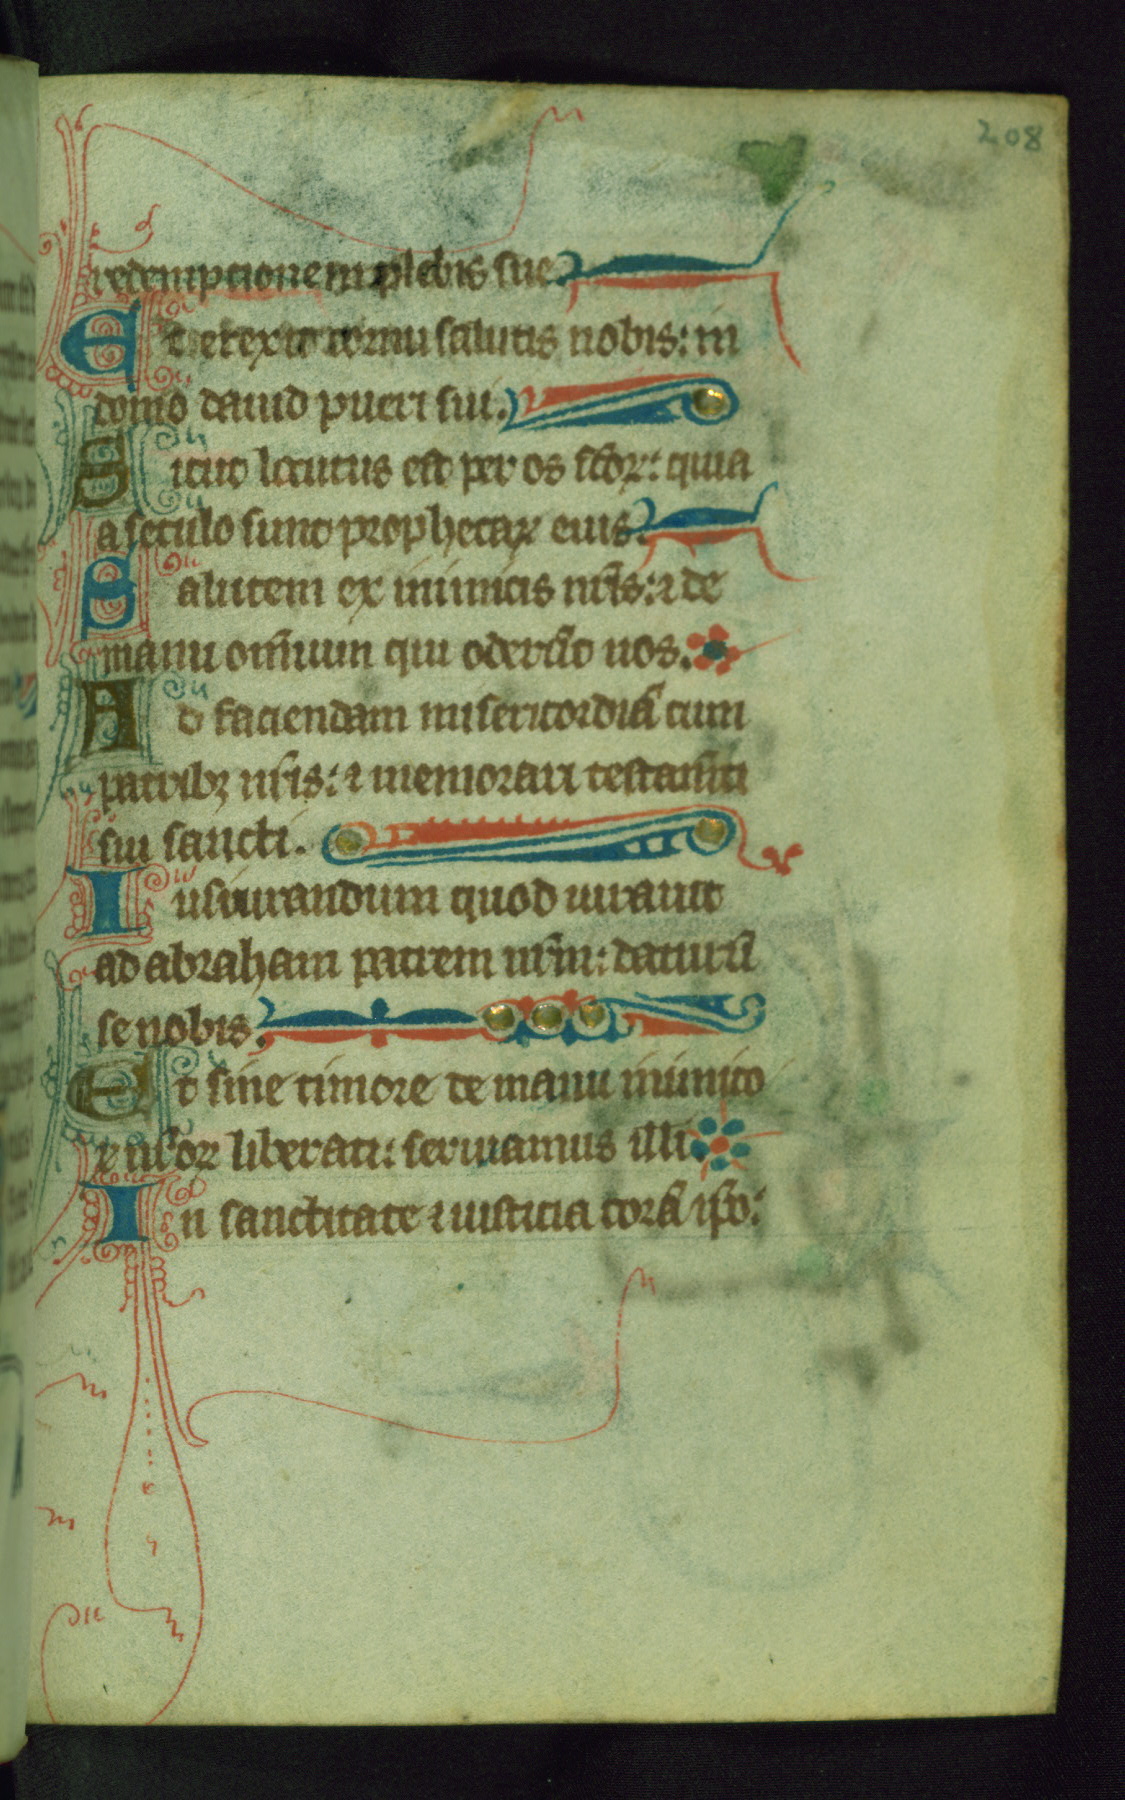 208
redemptionem plebis sue.
Et erexit cornu salutis nobis: in
domo dauid pueri sui.
Sicut locutus est per os sc̄oꝝ: quia
a seculo sunt prophetaꝝ eius.
Salutem ex inimicis nr̄is: ⁊ de
manu om̄ium qui oder̄ūt nos.
Ad faciendam misericordiā cum
patribꝫ nr̄is: ⁊ memorari testam̄ti
sui sancti.
Iusiurandum quod iurauit
ad abraham patrem nr̄m: daturū
se nobis.
Et sine timore de manu inimico
ꝝ nr̄oꝝ liberati: seruiamus illi.
In sanctitate ⁊ iusticia corā ip̄o: